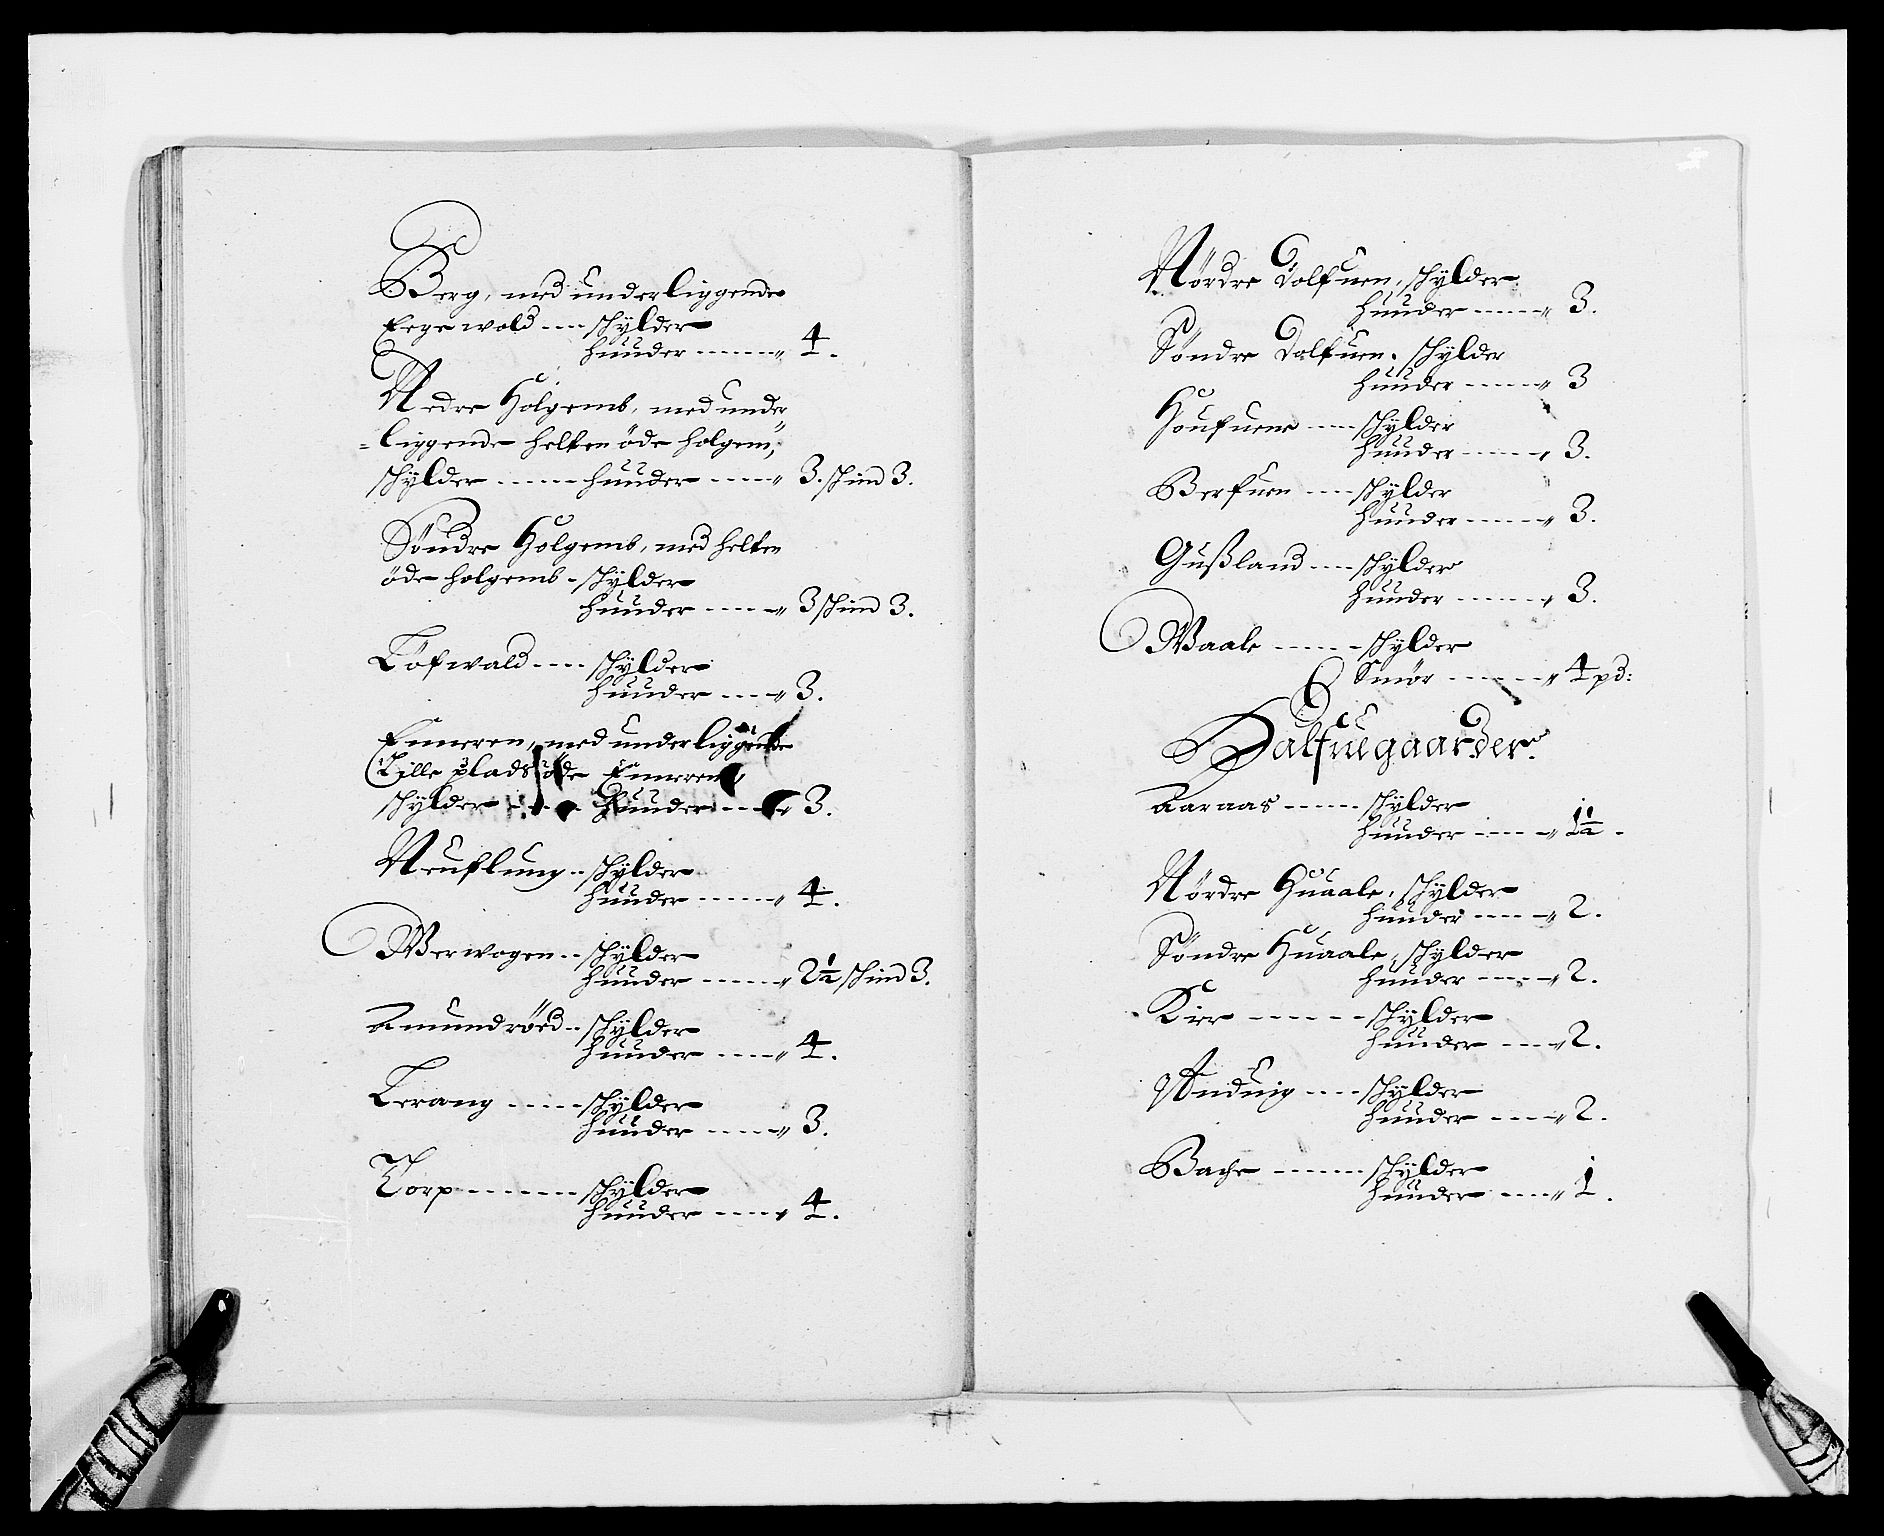 Berg, med underliggende
Eegewold --- schylder
huuder ------ „ 4.
Nedre Holgemb, med under
= liggende helten öde holgem,
schylder ----- huuder ---- „ 3. schind 3.
Söndre Holgemb, med helten
öde holgemb - schylder
huuder ----- „ 3 schind 3.
Löfwald ---- schylder
huuder ---- „ 3.
Enneren, med underliggende
Lille plads öde Enneren,
schylder ---- huuder ---- „ 3.
Neuflung -- schylder
huuder ----- „ 4.
Werwogen -- schylder
huuder ----- „ 2½ schind 3.
Amundröed -- schylder
huuder ---- „ 4.
Lerang ----- schylder
huuder ----- „ 3.
Torp ------- schylder
huuder ---- „ 4.
Nördre Dolfuen, schylder
huuder ----- „ 3.
Söndre Dalfuen, schylder
huuder ----- „ 3
Houfuene ---- schylder
huuder ----- „ 3.
Berfuen ---- schylder
huuder ----- „ 3.
Gußland ---- schylder
huuder ----- „ 3.
Waale ----- schylder
Smör ------ „ 4 pd:
Halfuegaarder.
Aaraas ----- schylder
huuder ---- „ 1½.
Nördre Huaale, schylder
huuder ---- „ 2.
Söndre Huaale, schylder
huuder ---- „ 2.
Kier ------ schylder
huuder --- „ 2.
Anduig ---- schylder
huuder --- „ 2.
Bache ------ schylder
huuder --- „ 1.